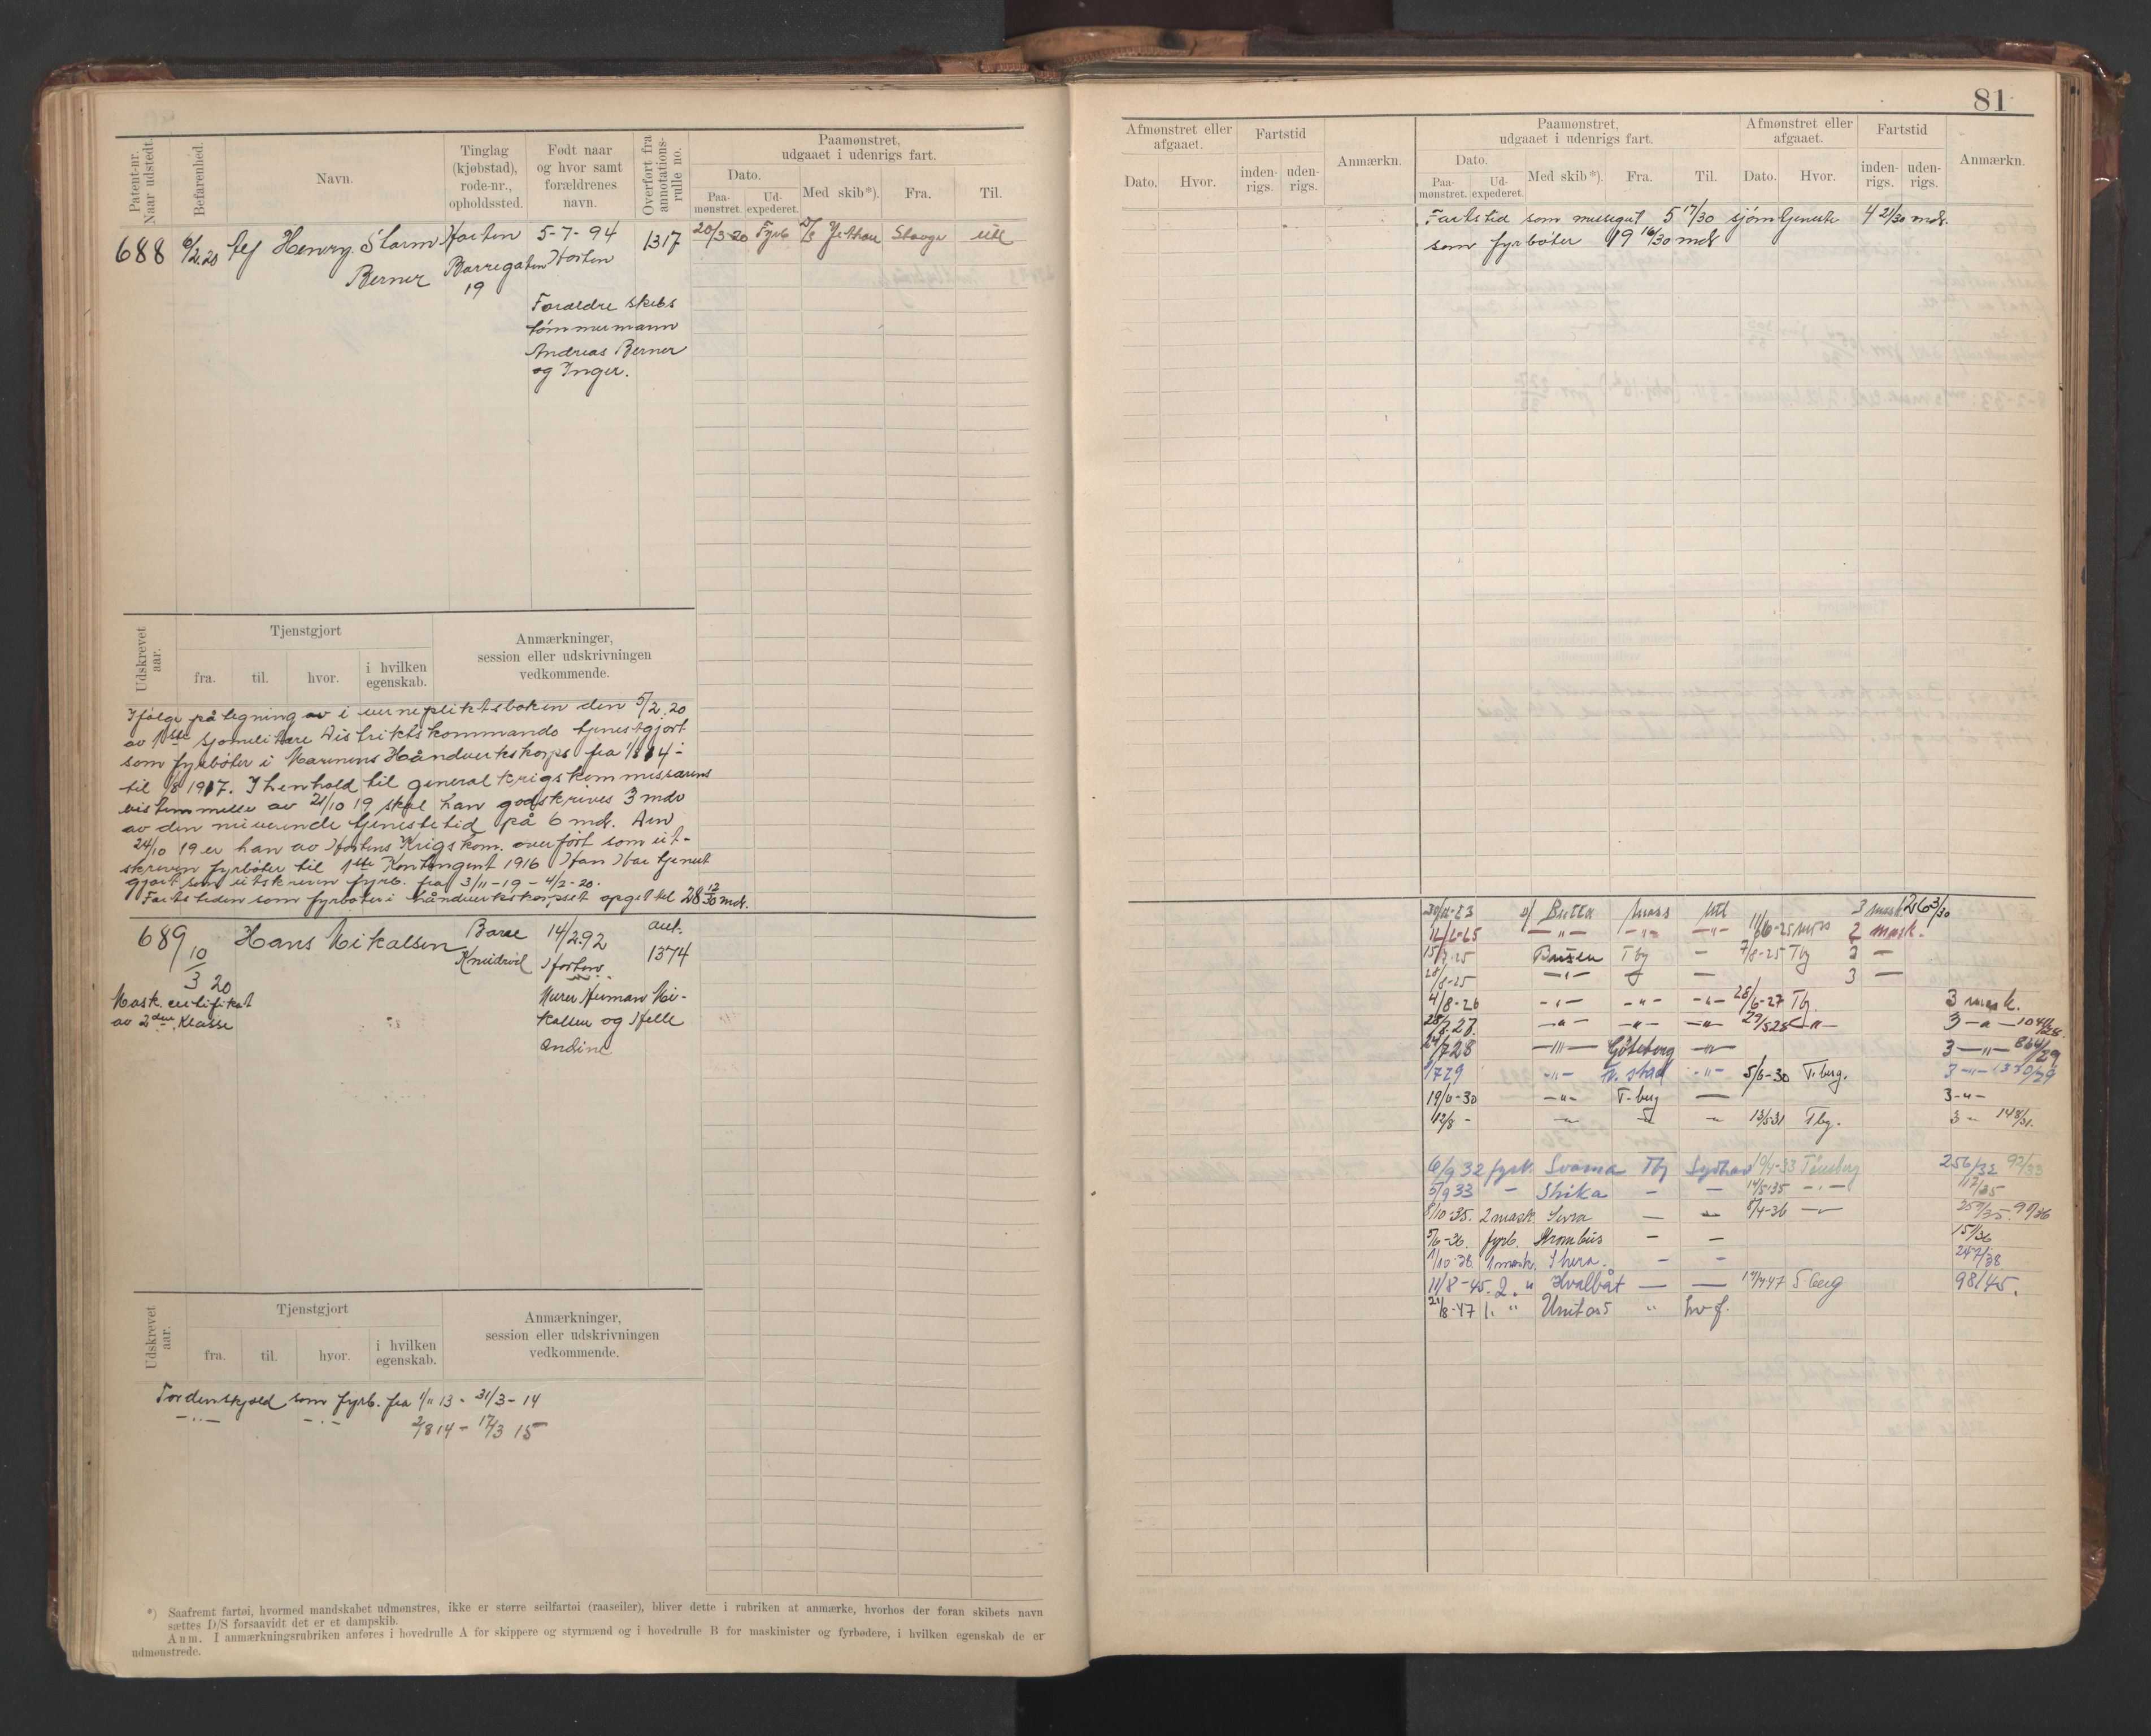 81
Patent-nr. Naar udstedt.
Befarenhed.
Navn.
Tinglag (kjøbstad), rode-nr., opholdssted.
Født naar og hvor samt forældrenes navn.
Overført fra annotations-rulle no.
Paamønstret, udgaaet i udenrigs fart.
Dato.
Paa-mønstret.
Ud-expederet.
Med skib*).
Fra.
Til.
688 6/2.20 Henry Storm Horten 5-7-94 1317 20/3-20 Fyrb
Berner 19 Horten
Forældre skibs
tømmermann
Andreas Berner
og Inger.
Udskrevet aar.
Tjenstgjort
fra. til. hvor. i hvilken egenskab.
Anmærkninger, session eller udskrivningen vedkommende.
Ifølge påtegning av i vernepliktsboken den 5/2.20
av 1ste sjømilitære Distriktskommando tjenestgjort
som fyrbøter i Marinens Håndverkskorps fra 1/8 14-
til 1/8 1917. I henhold til generalkrigskommissærens
bistemmelse av 21/10 19 skal han godskrives 3 mdr
av den nuverende tjenestetid på 6 mdr. Den
24/10 19 er han av Hortens Krigskom. overført som ut-
skreven fyrbøter til 1ste Kontingent 1916 Han har tjenest
gjort som utskreven fyrb. fra 3/11-19 - 4/2-20.
Fartstiden som fyrbøter i håndverkskorpset opgit til 28 12/30 mdr.
689 Hans Mikalsen Borre 14/2.92 ant.
10/3 20 Knudsrød Horten 1374
Mask. certifikat
av 2den Klasse
Murer Herman Mi-
kalsen og Helle
Andine
Udskrevet aar.
Tjenstgjort
fra. til. hvor. i hvilken egenskab.
Anmærkninger, session eller udskrivningen vedkommende.
Tordenskjold som fyrb. fra 1/11 13 - 31/3-14
-"- -"- 2/8 14 - 17/3 15
*) Saafremt fartøi, hvormed mandskabet udmønstres, ikke er større seilfartøi (raaseiler), bliver dette i rubriken at anmærke, hvorhos der foran skibets navn
sættes D/S forsaavidt det er et dampskib.
Anm. I anmærkningsrubriken anføres i hovedrulle A for skippere og styrmænd og i hovedrulle B for maskinister og fyrbødere, i hvilken egenskab de er
udmønstrede.
Afmønstret eller afgaaet.
Dato. Hvor.
Fartstid
inden-rigs. uden-rigs.
Anmærkn.
Paamønstret, udgaaet i udenrigs fart.
Dato.
Paa-mønstret. Ud-expederet.
Med skib*). Fra. Til.
Afmønstret eller afgaaet.
Dato. Hvor.
Fartstid
inden-rigs. uden-rigs.
Anmærkn.
Fartstid som messegut 5 17/30 sjømtjeneste 4 21/30 mdr.
som fyrbøter 19 16/30 mdr
3 mask.
2 mask.
15/7-25 Busen Tbg - 7/8-25 Tbg 2 -
28/8-25 -"- - 3 -
4/8-26 -"- -"- -"- 28/6-27 Tbg. 3 mask.
-"- -"- -"- 3 -"-
24/7 28 -"- Göteborg -"- 3 -"-
-"- -"- 5/6-30 T.berg. 3 -"-
-"- T-berg - 3-"-
12/8 - 13/5-31 Tbg. 3 - 148/31.
6/9 32 fyrb. Svama Tbg Sydhav 19/4-33 Tønsberg 256/32 92/33
5/9 33 - Shika - - 14/5-35 -"- 112/35
8/10-35. 2 mask. - 8/4-36
5/6-36. fyrb. Strombus - - 151/36
1/10-38 1 mask. Thera. - - 247/38
11/8-45. 2. " Hvalbåt - - 98/45.
21/8-47 1. " Unitas 5 " hv.f.